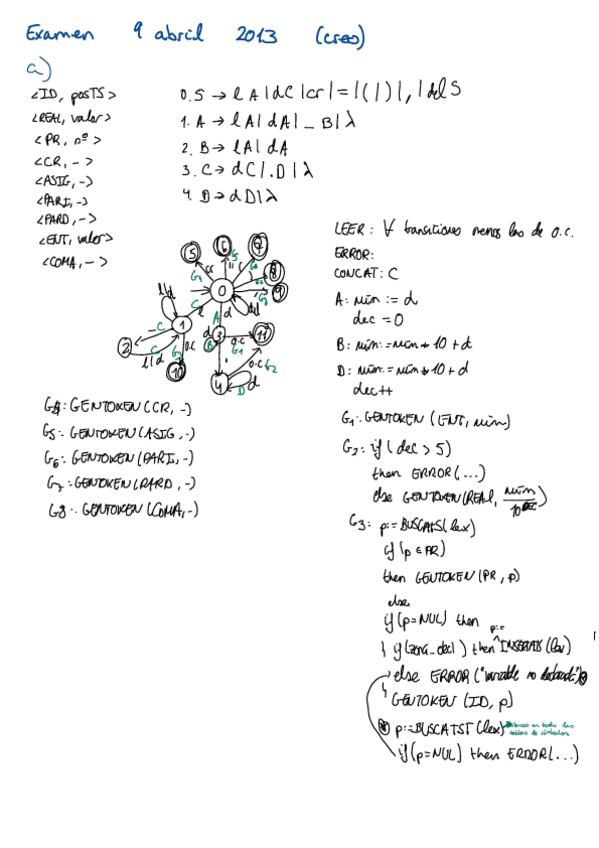 Examen 9 abril 2013 (creo)
a)
<ID, posTS>
<REAL, valor>
<PR, nº>
<CR, ->
<ASIG, ->
<PARI, ->
<PARD, ->
<ENT, valor>
<COMA, ->
0. S → l A | d C | cr | = | ( | ) | , | del S
1. A → l A | d A | _ B | λ
2. B → l A | d A
3. C → d C | . D | λ
4. D → d D | λ
LEER: ∀ transiciones menos las de o.c.
ERROR:
CONCAT: C
A: núm := d
dec = 0
B: núm := núm * 10 + d
D: núm := núm * 10 + d
dec++
G1: GENTOKEN (ENT, núm)
G2: if (dec > 5)
then ERROR(...)
else GENTOKEN (REAL, núm/10^dec)
G3: p := BUSCATS(lex)
if (p ∈ PR)
then GENTOKEN (PR, p)
else
if (p = NUL) then
if (zona_decl) then p:= INSERTATS (lex)
else ERROR ("variable no declarada")
GENTOKEN (ID, p)
p := BUSCATST (lex)
if (p = NUL) then ERROR(...)
5 6 7 8 9
0
1 2 3 4 10 11
G4: GENTOKEN (CR, -)
G5: GENTOKEN (ASIG, -)
G6: GENTOKEN (PARI, -)
G7: GENTOKEN (PARD, -)
G8: GENTOKEN (COMA, -)